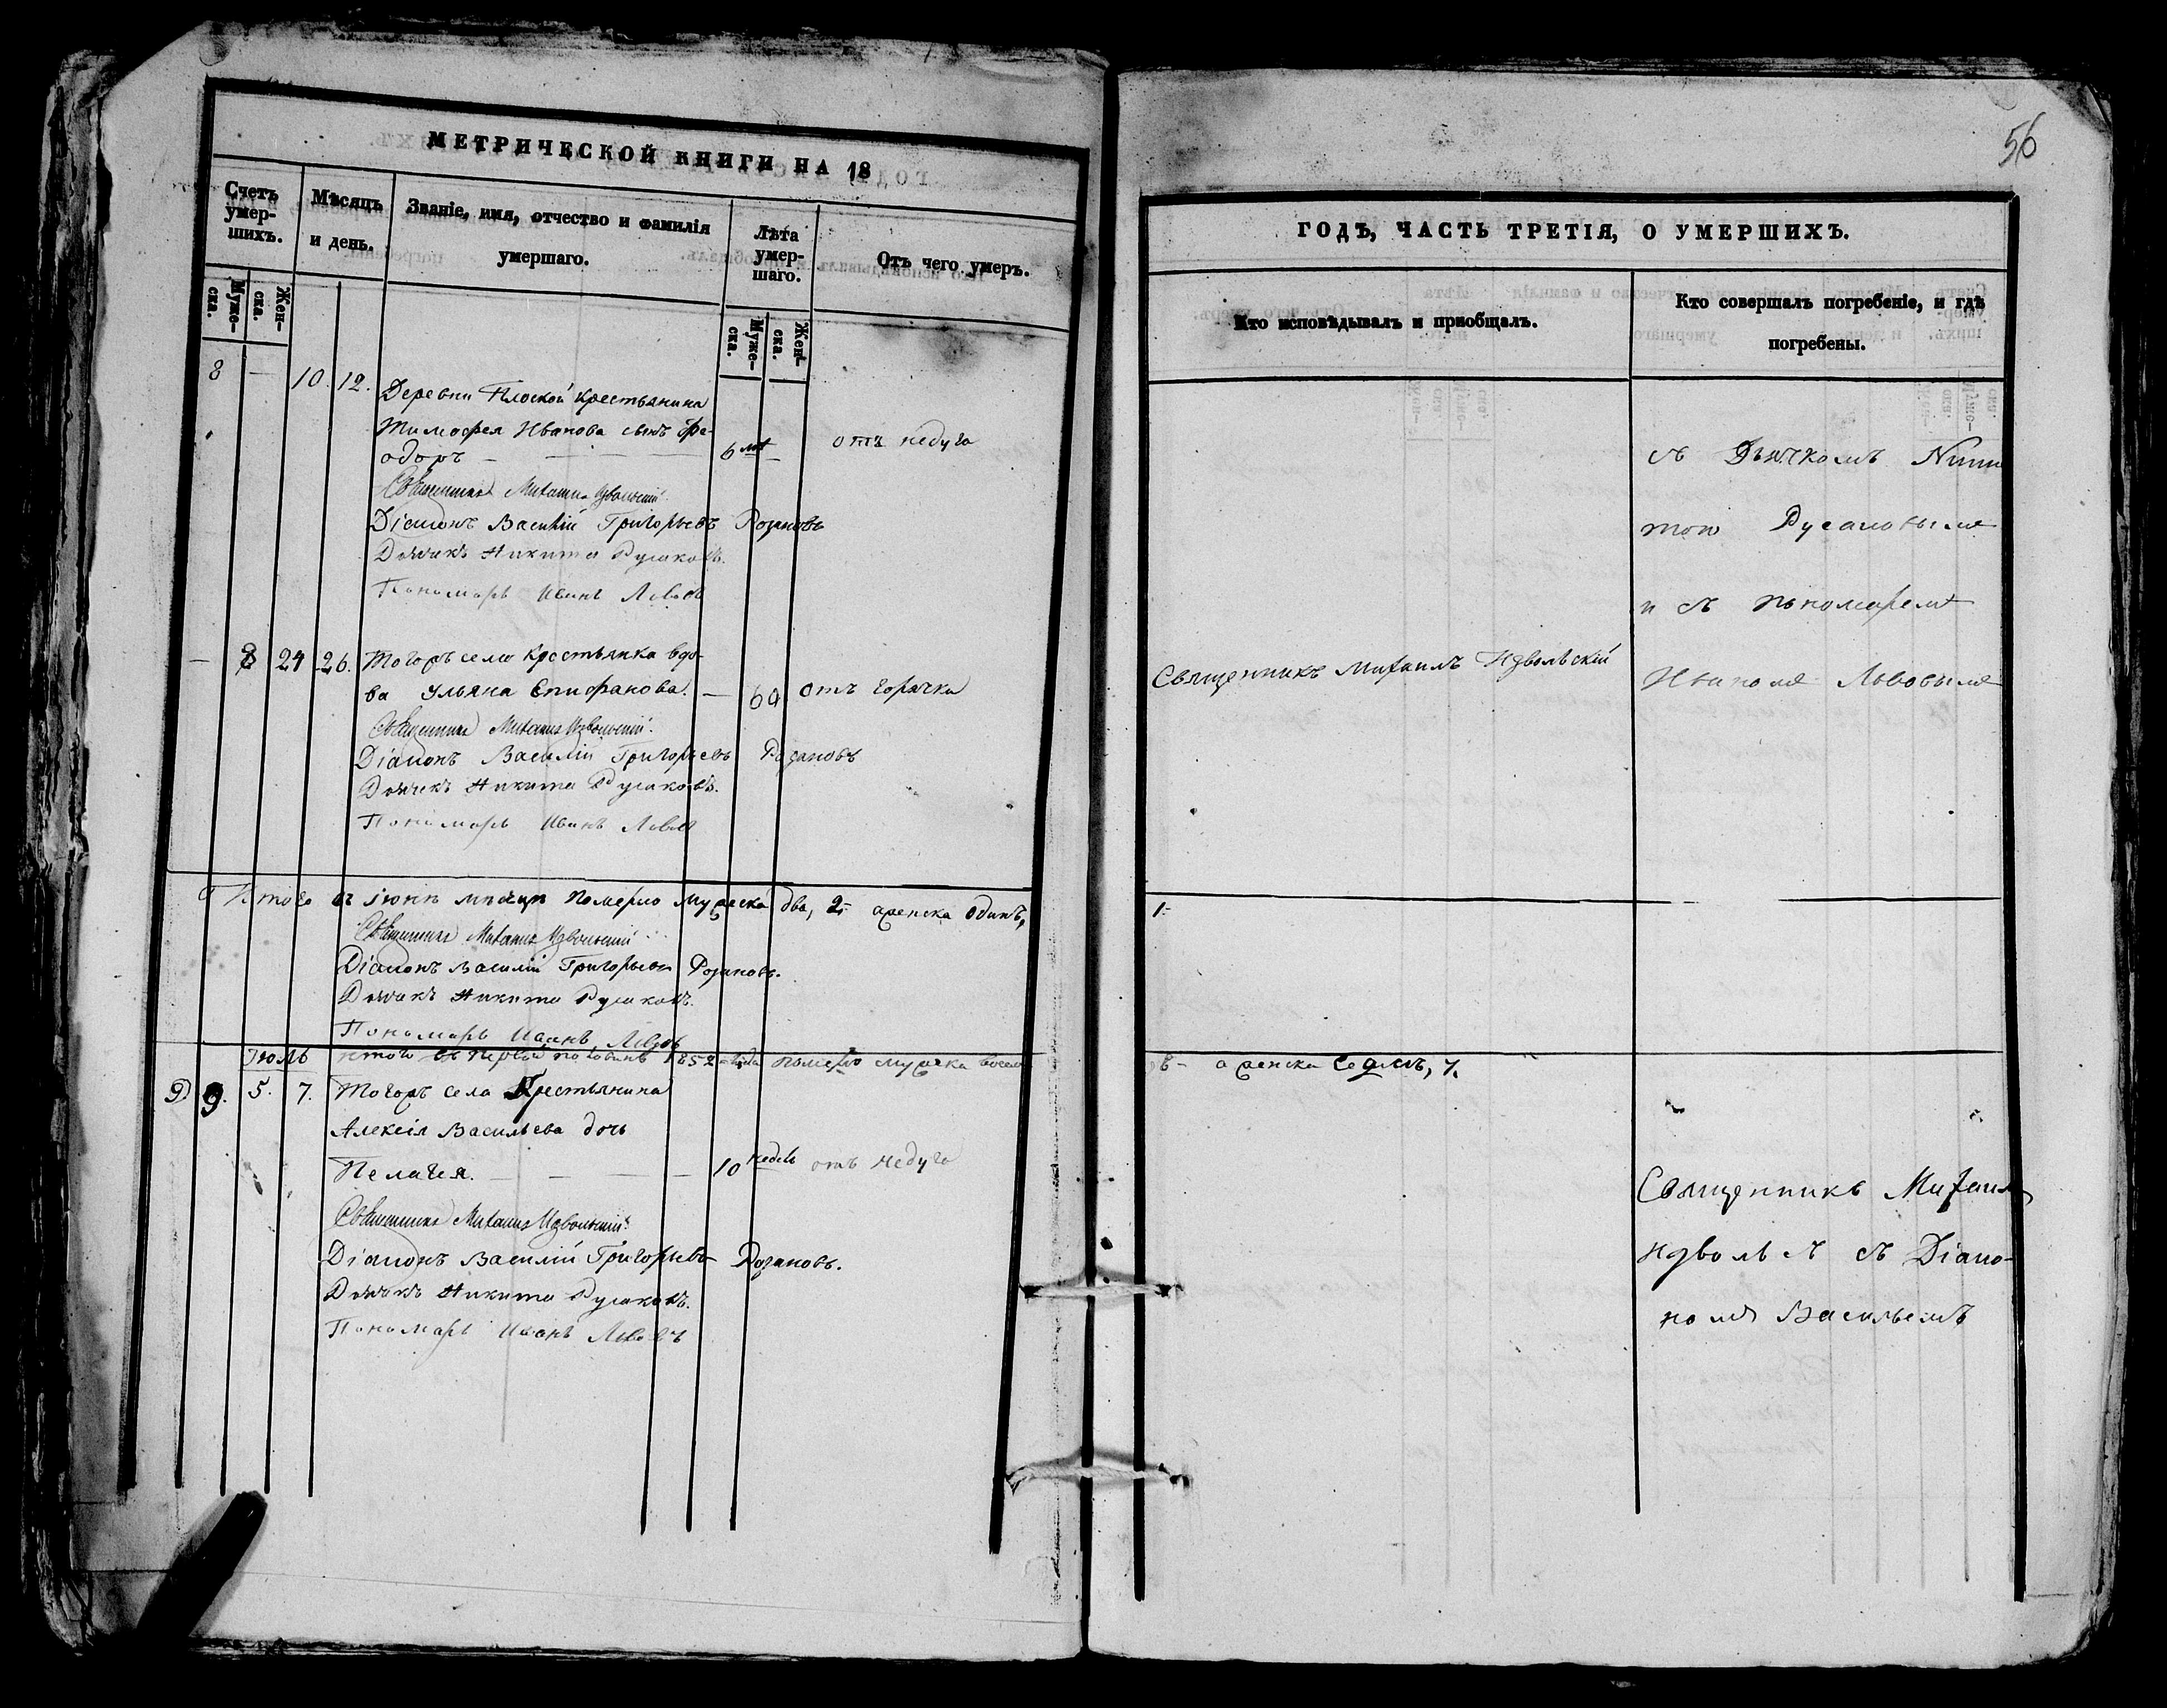 МЕТРИЧЕСКОЙ КНИГИ НА 18
Счетъ умер-шихъ.
Муже-ска.
Жен-ска.
Мѣсяцъ и день.
Званіе, имя, отчество и фамилія умершаго.
Лѣта умер-шаго.
Муже-ска.
Жен-ска.
Отъ чего умеръ.
8 — 10. 12. Деревни Плоской крестьянина
Тимофея Иванова сынъ Ѳе-
одоръ — 6 лѣт — отъ недуга
Священникъ Михаилъ Извольскій
Діаконъ Василій Григорьевъ Розановъ
Дьячикъ Никита Русаковъ.
Пономарь Иванъ Львовъ
— 8 24 26. Тогоръ села крестьянка вдо-
ва Ульяна Епифанова. — 60 отъ горячки
Священникъ Михаилъ Извольскій.
Діаконъ Василій Григорьевъ Розановъ
Дьячикъ Никита Русаковъ.
Пономарь Иванъ Львовъ
Итого въ іюнѣ мѣсяцѣ померло мужеска два, 2. женска одинъ,
Священникъ Михаилъ Извольскій
Діаконъ Василій Григорьевъ Розановъ.
Дьячикъ Никита Русаковъ.
Пономарь Иванъ Львовъ
Итого въ первой половинѣ 1852 года померло мужеска восемь
Іюль
9. 5. 7. Тогоръ села Крестьянина
Алексія Васильева дочь
Пелагея. — 10 недель отъ недуга
Священникъ Михаилъ Извольскій
Діаконъ Василій Григорьевъ Розановъ.
Дьячикъ Никита Русаковъ.
Пономарь Иванъ Львовъ
56
ГОДѢ, ЧАСТЬ ТРЕТІЯ, О УМЕРШИХЪ.
Кто исповѣдывалъ и пріобщалъ.
Кто совершалъ погребеніе, и гдѣ
погребены.
съ Дьячкомъ Ники
тою Русаковымъ
и съ пономаремъ
Священникъ Михаилъ Извольскій
Иваномъ Львовымъ
1.
8 — женска Седмь, 7.
Священникъ Михаил
Извольс съ Діако-
номъ Васильемъ